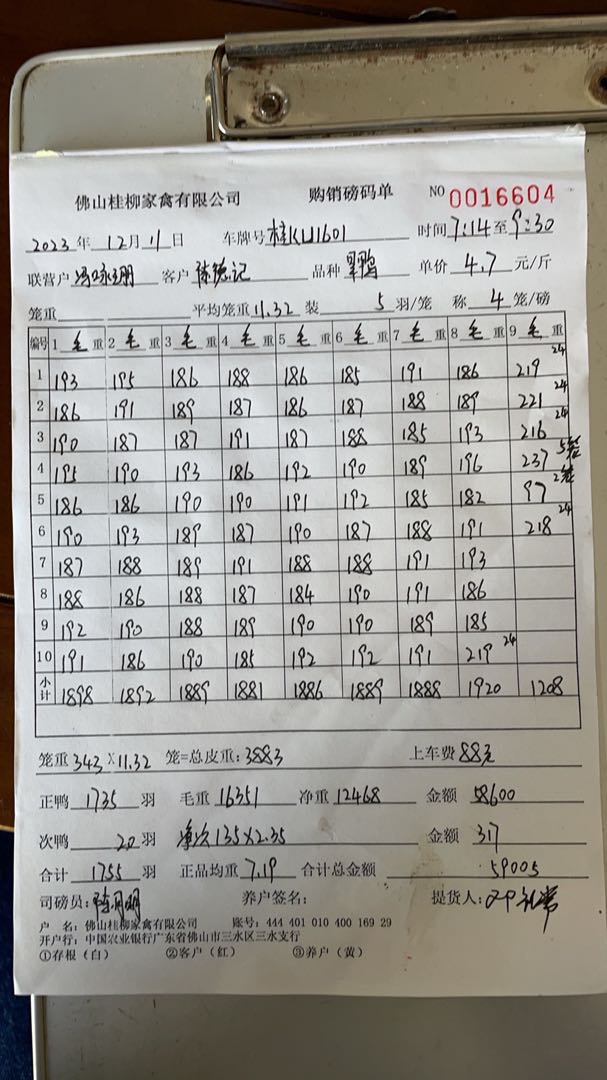 佛山桂柳家禽有限公司 购销磅码单 NO 0016604
2023年12月11日 车牌号桂KU1601 时间7:14至9:30
联营户冯咏珊 客户陈德记 品种 单价4.7元/斤
笼重 平均笼重11.32 装5羽/笼 称4笼/磅
编号 1毛重 2毛重 3毛重 4毛重 5毛重 6毛重 7毛重 8毛重 9毛重
1 193 195 186 188 186 185 191 186 219 24
2 186 191 189 187 186 187 188 189 221 24
3 190 187 187 191 187 188 185 193 216 24
4 195 190 193 186 192 190 189 196 237 5笼
5 186 186 190 190 191 192 185 182 97 2笼
6 190 193 189 187 190 187 188 191 218 24
7 187 188 189 191 188 188 191 193
8 188 186 188 187 184 190 191 186
9 192 190 188 189 190 190 189 185
10 191 186 190 185 192 192 191 219 24
小计 1898 1892 1889 1881 1886 1889 1888 1920 1208
笼重343×11.32笼=总皮重:3883 上车费88元
正鸭1735羽 毛重16351 净重12468 金额58600
次鸭20羽 135×2.35 金额317
合计1755羽 正品均重7.19 合计总金额59005
司磅员: 养户签名: 提货人:
户 名:佛山桂柳家禽有限公司 账号:444 401 010 400 169 29
开户行:中国农业银行广东省佛山市三水区三水支行
①存根(白) ②客户(红) ③养户(黄)